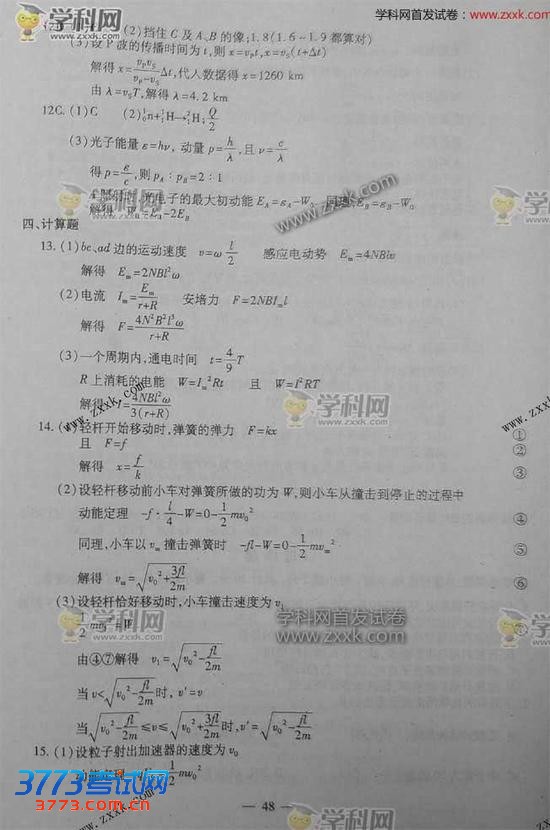 学科网首发试卷
网址:www.zxxk.com
(2)挡住C及A、B的像;1.8(1.6~1.9都算对)
(3)设P波的传播时间为t,则x=v_Pt,x=v_S(t+Δt)
解得 x=\frac{v_Pv_S}{v_P-v_S}Δt,代入数据得 x=1260 km
由 λ=v_ST,解得 λ=4.2 km
12C.(1)C (2)¹₀n+¹₁H→²₁H;\frac{Q}{2}
(3)光子能量 ε=hν,动量 p=\frac{h}{λ},且 ν=\frac{c}{λ}
得 p=\frac{ε}{c},则 p_A:p_B=2:1
光电子的最大初动能 E_A=ε_A-W_0 同理,E_B=ε_B-W_0
解得 W_0=E_A-2E_B
四、计算题
13.(1)bc、ad边的运动速度 v=ω\frac{l}{2} 感应电动势 E_m=4NBlv
解得 E_m=2NBl²ω
(2)电流 I_m=\frac{E_m}{r+R} 安培力 F=2NBI_ml
解得 F=\frac{4N²B²l³ω}{r+R}
(3)一个周期内,通电时间 t=\frac{4}{9}T
R上消耗的电能 W=I_m²Rt 且 W=I²RT
解得 I=\frac{4NBl²ω}{3(r+R)}
14.(1)轻杆开始移动时,弹簧的弹力 F=kx ①
且 F=f ②
解得 x=\frac{f}{k} ③
(2)设轻杆移动前小车对弹簧所做的功为W,则小车从撞击到停止的过程中
动能定理 -f·\frac{l}{4}-W=0-\frac{1}{2}mv_0² ④
同理,小车以v_m撞击弹簧时 -fl-W=0-\frac{1}{2}mv_m² ⑤
解得 v_m=\sqrt{v_0²+\frac{3fl}{2m}} ⑥
(3)设轻杆恰好移动时,小车撞击速度为v_1
\frac{1}{2}mv_1²=W
由④⑦解得 v_1=\sqrt{v_0²-\frac{fl}{2m}}
当 v<\sqrt{v_0²-\frac{fl}{2m}}时,v′=v
当\sqrt{v_0²-\frac{fl}{2m}}≤v≤\sqrt{v_0²+\frac{3fl}{2m}}时,v′=\sqrt{v_0²-\frac{fl}{2m}}
15.(1)设粒子射出加速器的速度为v_0
动能定理 \frac{1}{2}mv_0²
— 48 —
学科网
www.zxxk.com
学科网首发试卷
zxxk.com
3773考试网
3773.com.cn